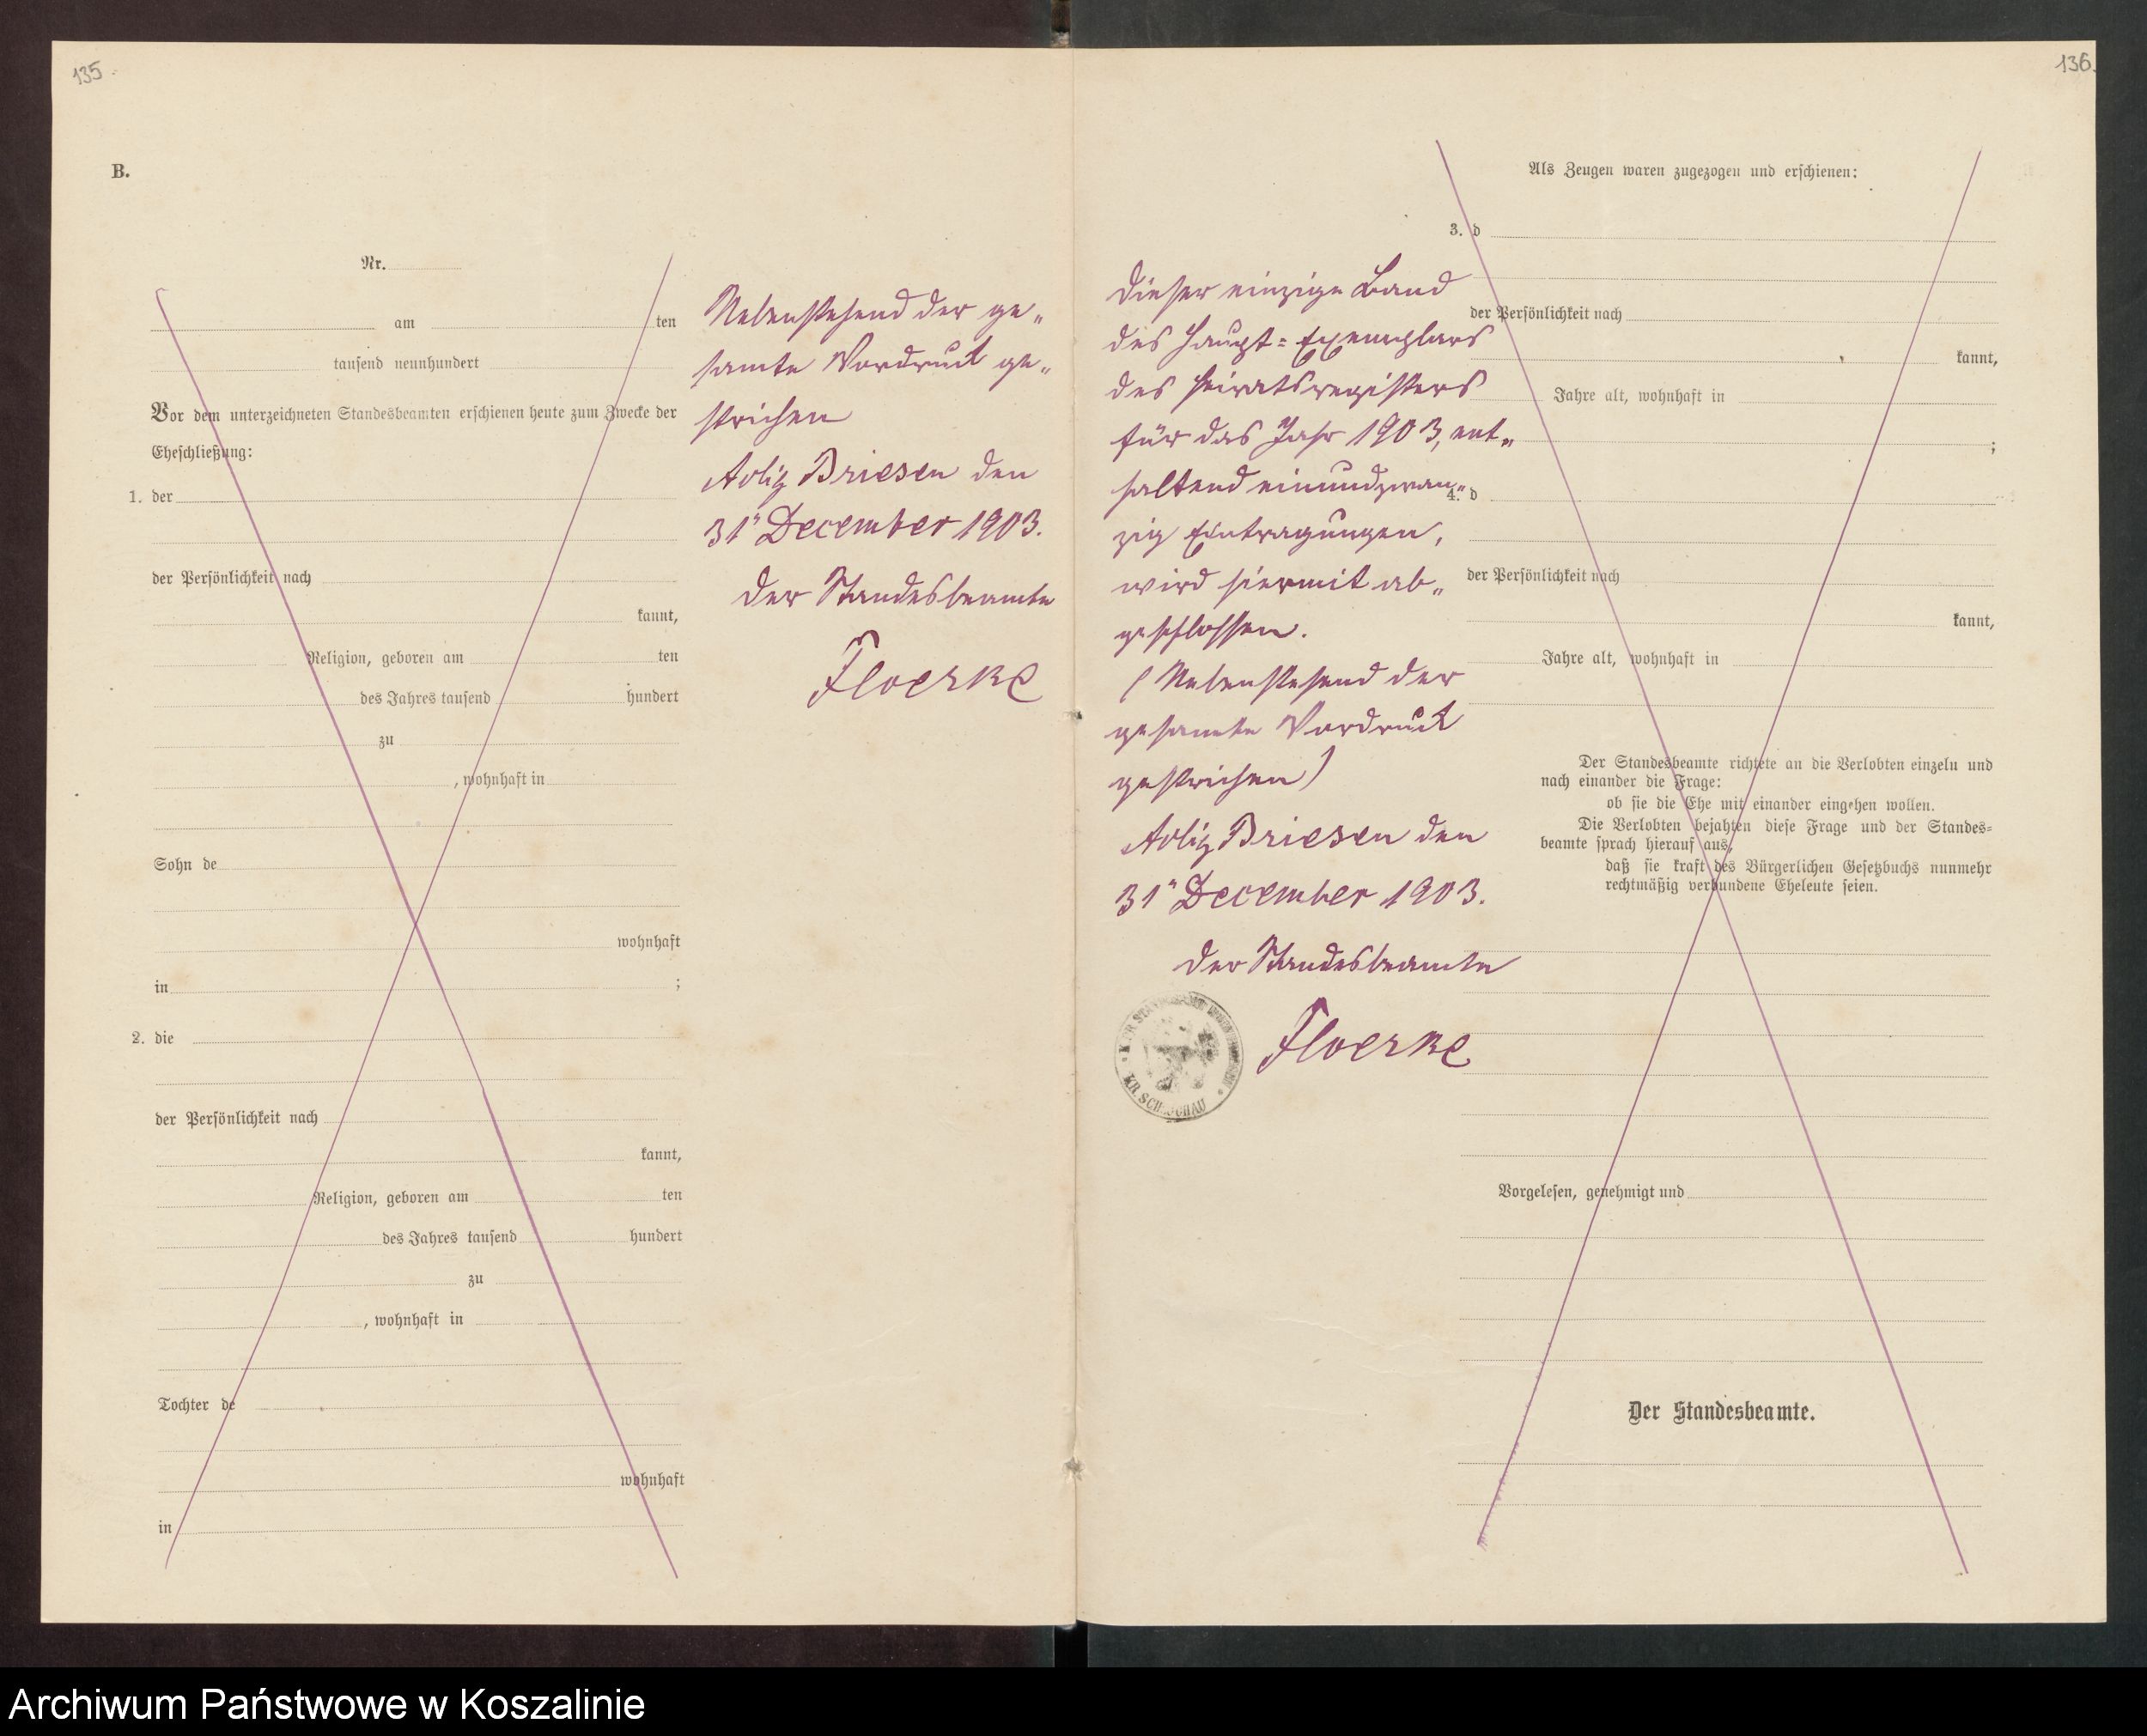 135
B.
Nr.
am ten
tausend neunhundert
Vor dem unterzeichneten Standesbeamten erschienen heute zum Zwecke der
Eheschließung:
1. der
der Persönlichkeit nach
kannt,
Religion, geboren am ten
des Jahres tausend hundert
zu
, wohnhaft in
Sohn de
wohnhaft
in ;
2. die
der Persönlichkeit nach
kannt,
Religion, geboren am ten
des Jahres tausend hundert
zu
, wohnhaft in
Tochter de
wohnhaft
in
Nebenstehend der ge„
samte Vordruck ge„
strichen
Adlig Briesen den
31" December 1903.
Der Standesbeamte
Floerke
136.
Dieser einzige Band
des Haupt=Exemplars
des Heiratsregisters
für das Jahr 1903, ent„
haltend einundzwan„
zig Eintragungen,
wird hiermit ab„
geschlossen.
(Nebenstehend der
gesamte Vordruck
gestrichen)
Adlig Briesen den
31" December 1903.
Der Standesbeamte
Floerke
KR. SCHLOCHAU
Als Zeugen waren zugezogen und erschienen:
3. d
der Persönlichkeit nach
kannt,
Jahre alt, wohnhaft in
;
4. d
der Persönlichkeit nach
kannt,
Jahre alt, wohnhaft in
Der Standesbeamte richtete an die Verlobten einzeln und
nach einander die Frage:
ob sie die Ehe mit einander eingehen wollen.
Die Verlobten bejahten diese Frage und der Standes=
beamte sprach hierauf aus,
daß sie kraft des Bürgerlichen Gesetzbuchs nunmehr
rechtmäßig verbundene Eheleute seien.
Vorgelesen, genehmigt und
Der Standesbeamte.
Archiwum Państwowe w Koszalinie